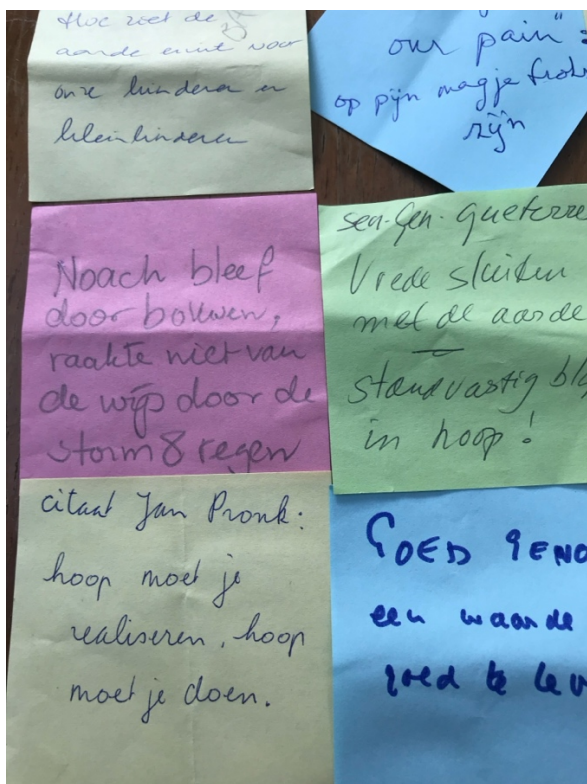 Hoe ziet de
aarde eruit voor
onze kinderen en
kleinkinderen
our pain"
op pijn mag je
zijn
Noach bleef
door bouwen,
raakte niet van
de wijs door de
storm & regen
sec. Gen. Gueterres
Vrede sluiten
met de aarde
standvastig
in hoop!
citaat Jan Pronk:
hoop moet je
realiseren, hoop
moet je doen.
GOED
een waarde
goed te